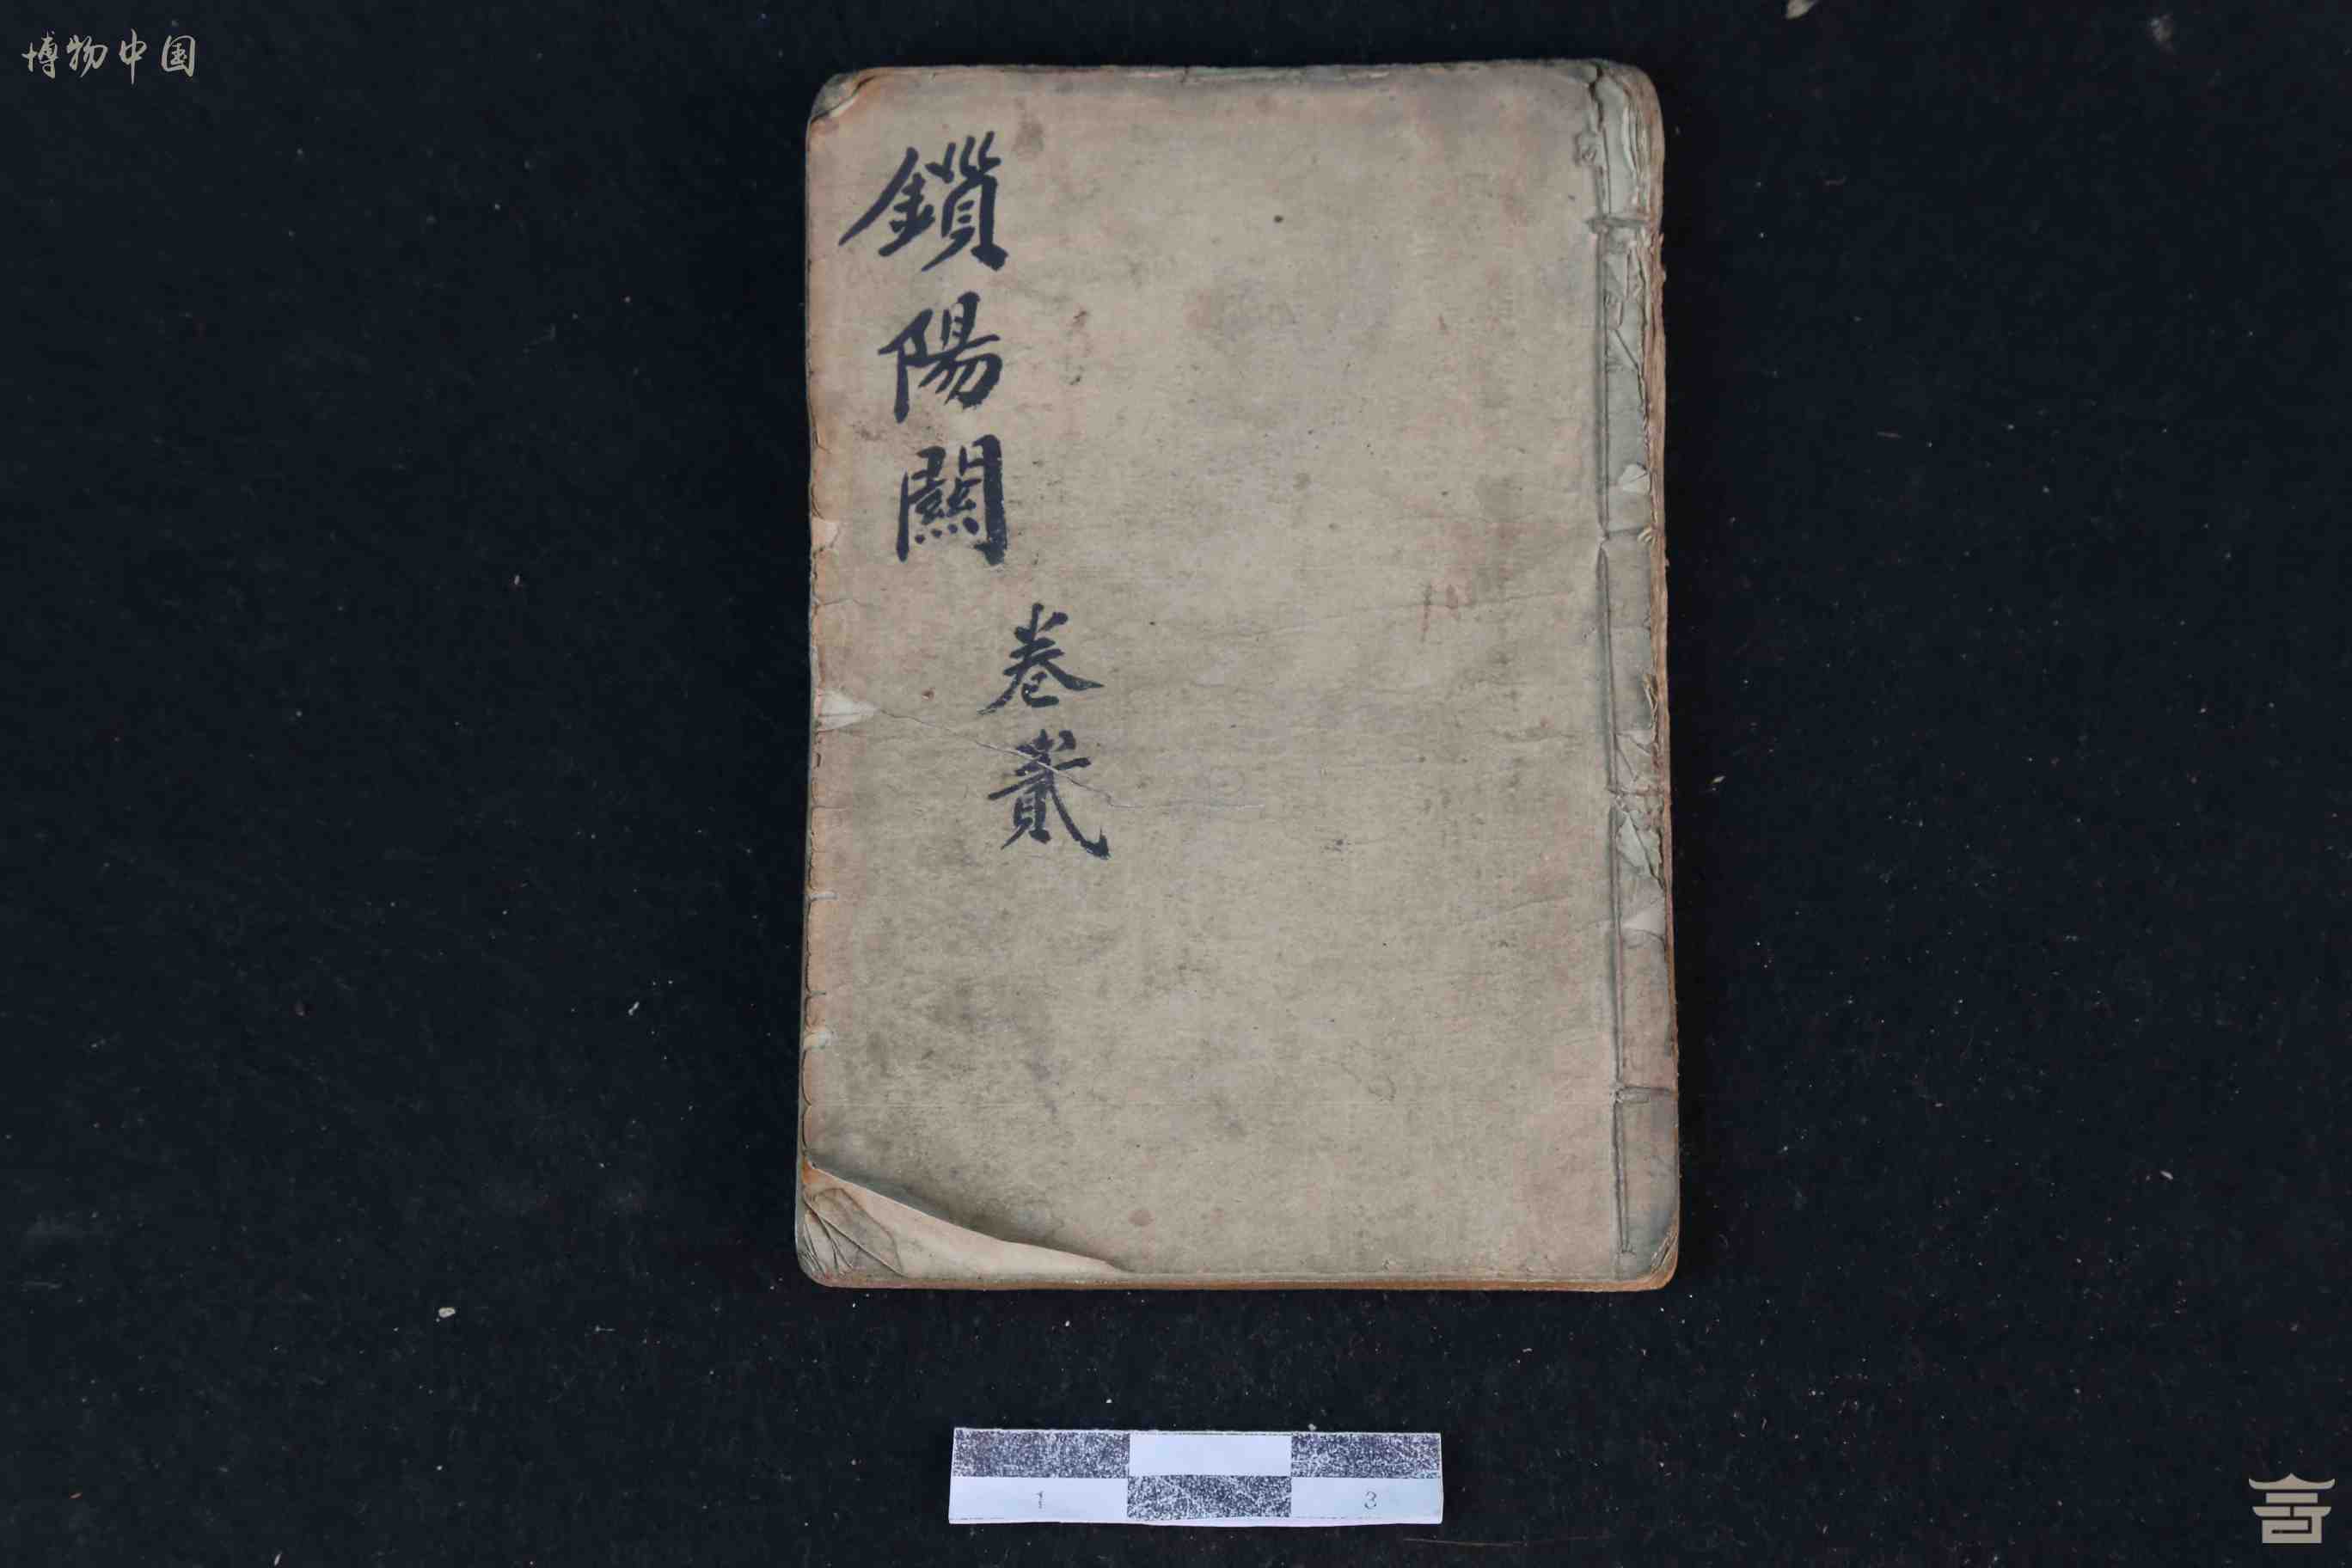 博物中国
鎖陽關
卷貳
1 3